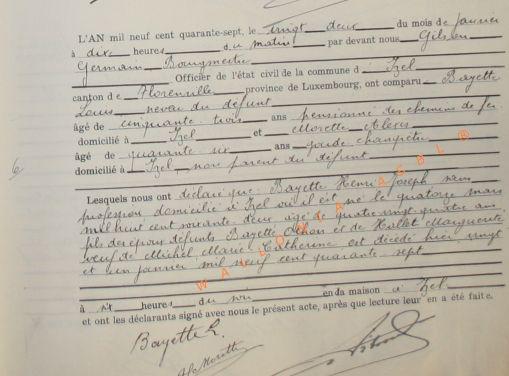 L'AN mil neuf cent quarante-sept, le vingt deux du mois de janvier
à dix heures du matin par devant nous Gilson
Germain Bourgmestre
Officier de l'état civil de la commune d' Izel
canton de Florenville province de Luxembourg, ont comparu Bayette
Louis neveu du défunt
âgé de cinquante trois ans pensionné des chemins de fer
domicilié à Izel et Morette
âgé de quarante six ans garde champêtre
domicilié à Izel non parent du défunt
Lesquels nous ont déclaré que Bayette Henri Joseph sans
profession domicilié à Izel où il est né le quatorze mars
mil huit cent soixante deux âgé de quatre vingt quatre ans
fils des époux défunts Bayette et de Hallet Marguerite
veuf de Michel Marie Catherine est décédé hier vingt
et un janvier mil neuf cent quarante sept
à six heures du soir en da maison à Izel
et ont les déclarants signé avec nous le présent acte, après que lecture leur en a été faite.
Bayette L.
WALLONIA ASBL ®
6